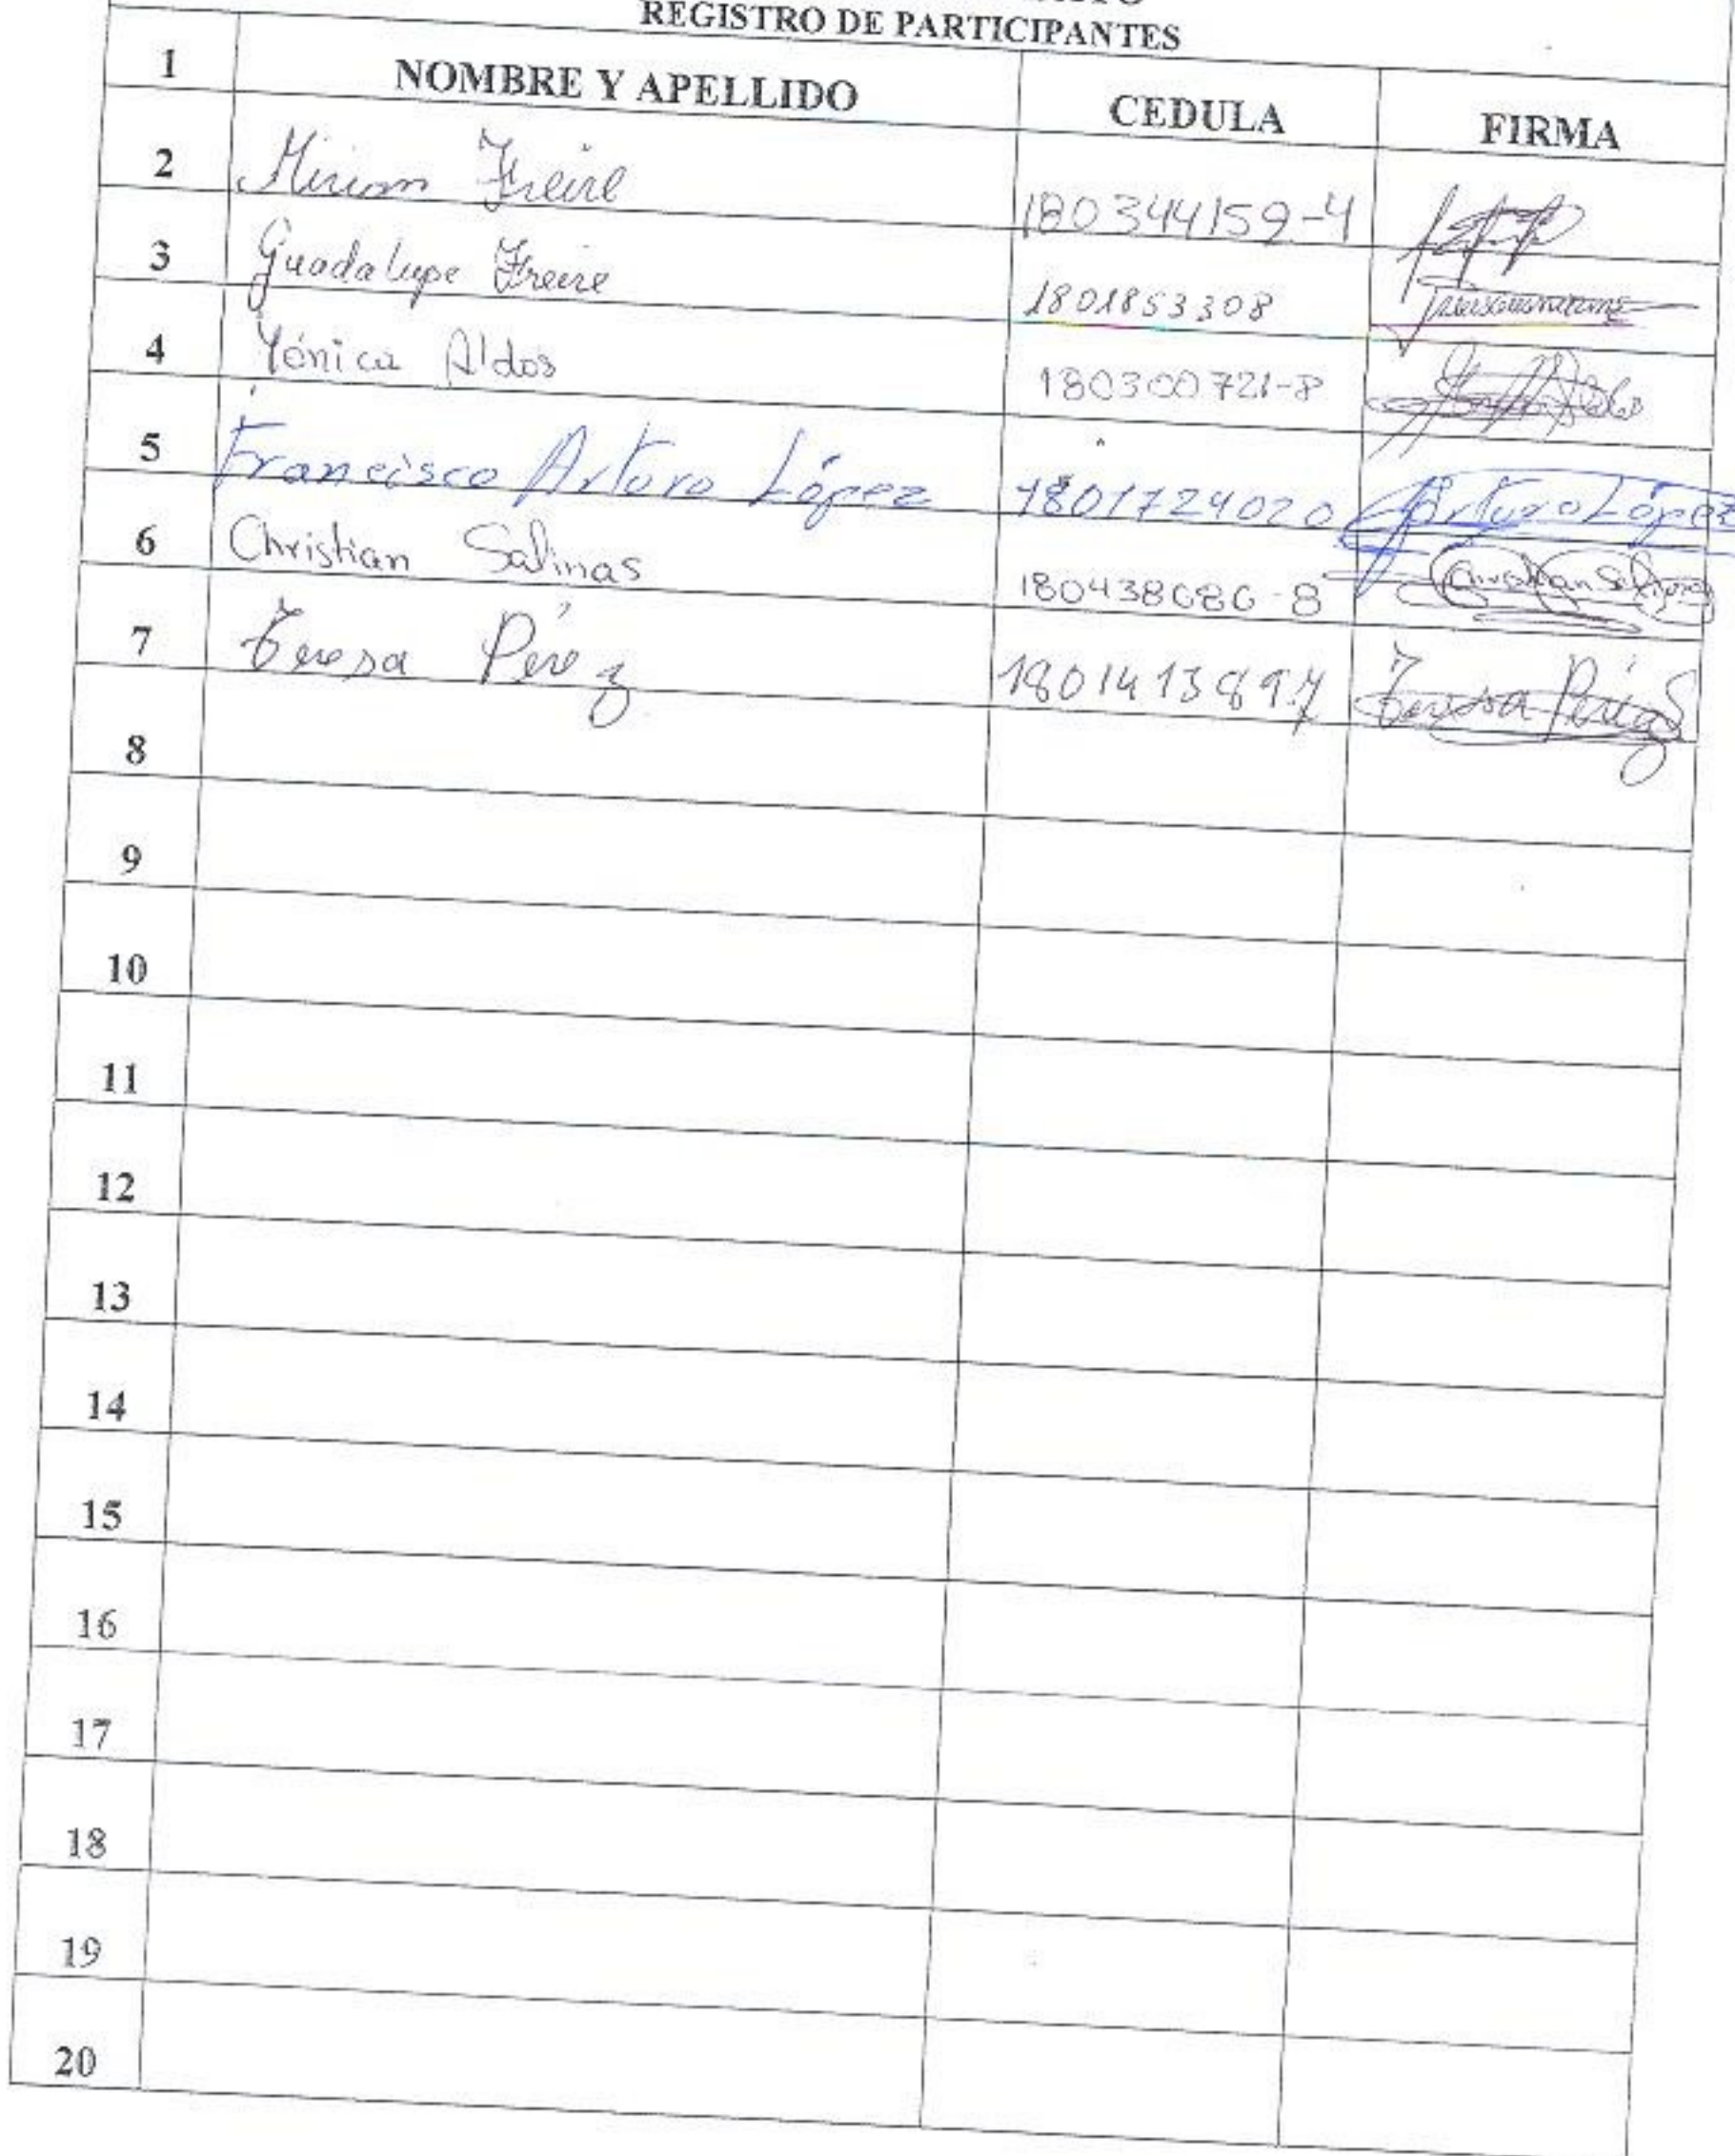 REGISTRO DE PARTICIPANTES
1 NOMBRE Y APELLIDO CEDULA FIRMA
2 Miriam Freire 180344159-4
3 Guadalupe Freire 1801853308
4 Mónica Aldos 180300721-8
5 Francisco Arturo López 1801724020 Arturo López
6 Christian Salinas 180438686-8 Christian Salinas
7 Teresa Pérez Teresa Pérez
8
9
10
11
12
13
14
15
16
17
18
19
20